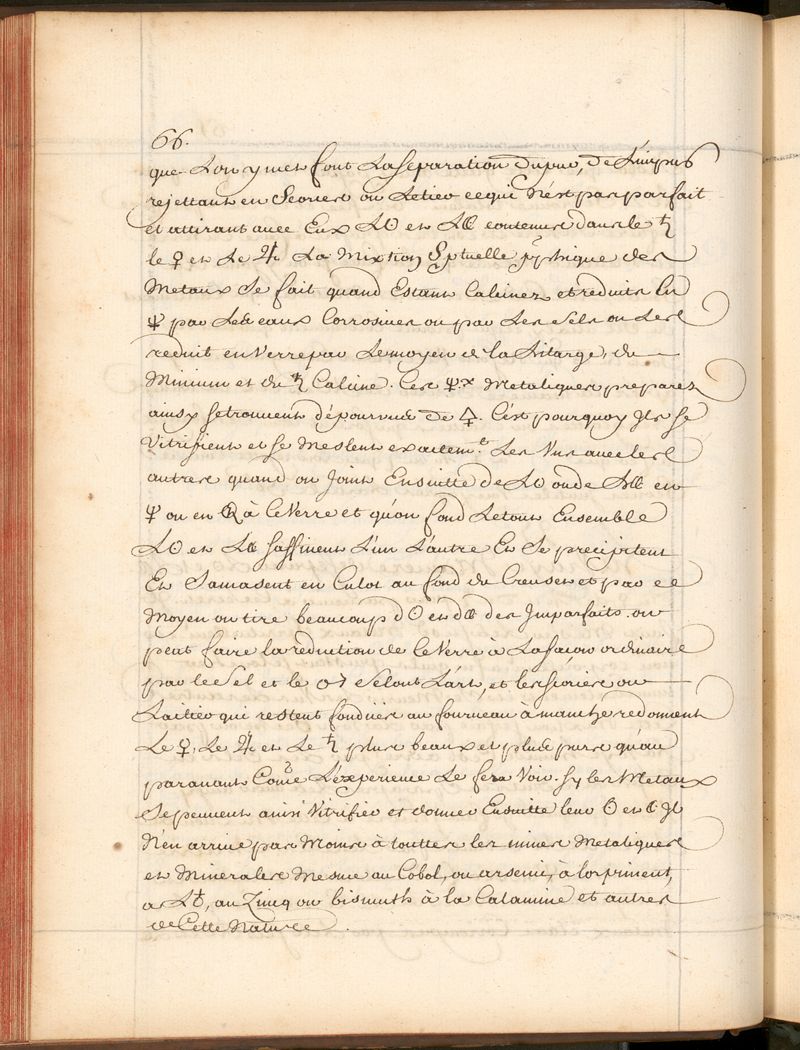 66.
que Lon y met font La separation du pur, de L'impur
rejettant en Scories ou Letier ce qui N'est pas parfait
et attirant avec Eux L☉ et L☾ contenus dans le ♄
le ♀ et Le ♃. La Mixtion phisique des
Metaux Se fait quand Estant Calcinez et reduits En
🜍 par Les eaux Corrosives ou par Les Sels on Les
reduit en Verre par Le moyen de la Litarge, du
Minium et du ♄ Calciné. Ces Metaliques preparez
ainsy se trouvent dépourvus de 🜍. C'est pourquoy Ils se
Vitrifient et se Meslent exactem.t Les Uns avec les
autres quand on Joint Ensuitte de L☉ ou de L☾ en
ou en à Ce Verre et qu'on fond Le tout Ensemble
L☉ et L☾ saffinent L'un L'autre Et Se precipitent
Et Samasent en Culot au fond du Creuset et par ce
Moyen on tire beaucoup d☉ et d☾ des Imparfaits. on
peut faire la reduction de Ce Verre à La façon ordinaire
par le Sel et le Selont L'art, et les scories ou
Laitier qui restent fondües au fourneau à manche redonnent
Le ♀, Le ♃ et Le ♄ plus beaux et plus purs qu'au
paravant Come L'experience Le fera Voir. sy les Metaux
Se peuvent ainsi Vitrifier et donner Ensuitte leur ☉ et ☾ Il
N'en arrive pas Moins à touttes les mines Metaliques
et Minerales Mesme au Cobol, ou arsenic, à lorpiment,
a L♁, au Zincq ou bismuth à la Calamine et autres
de Cette Nature